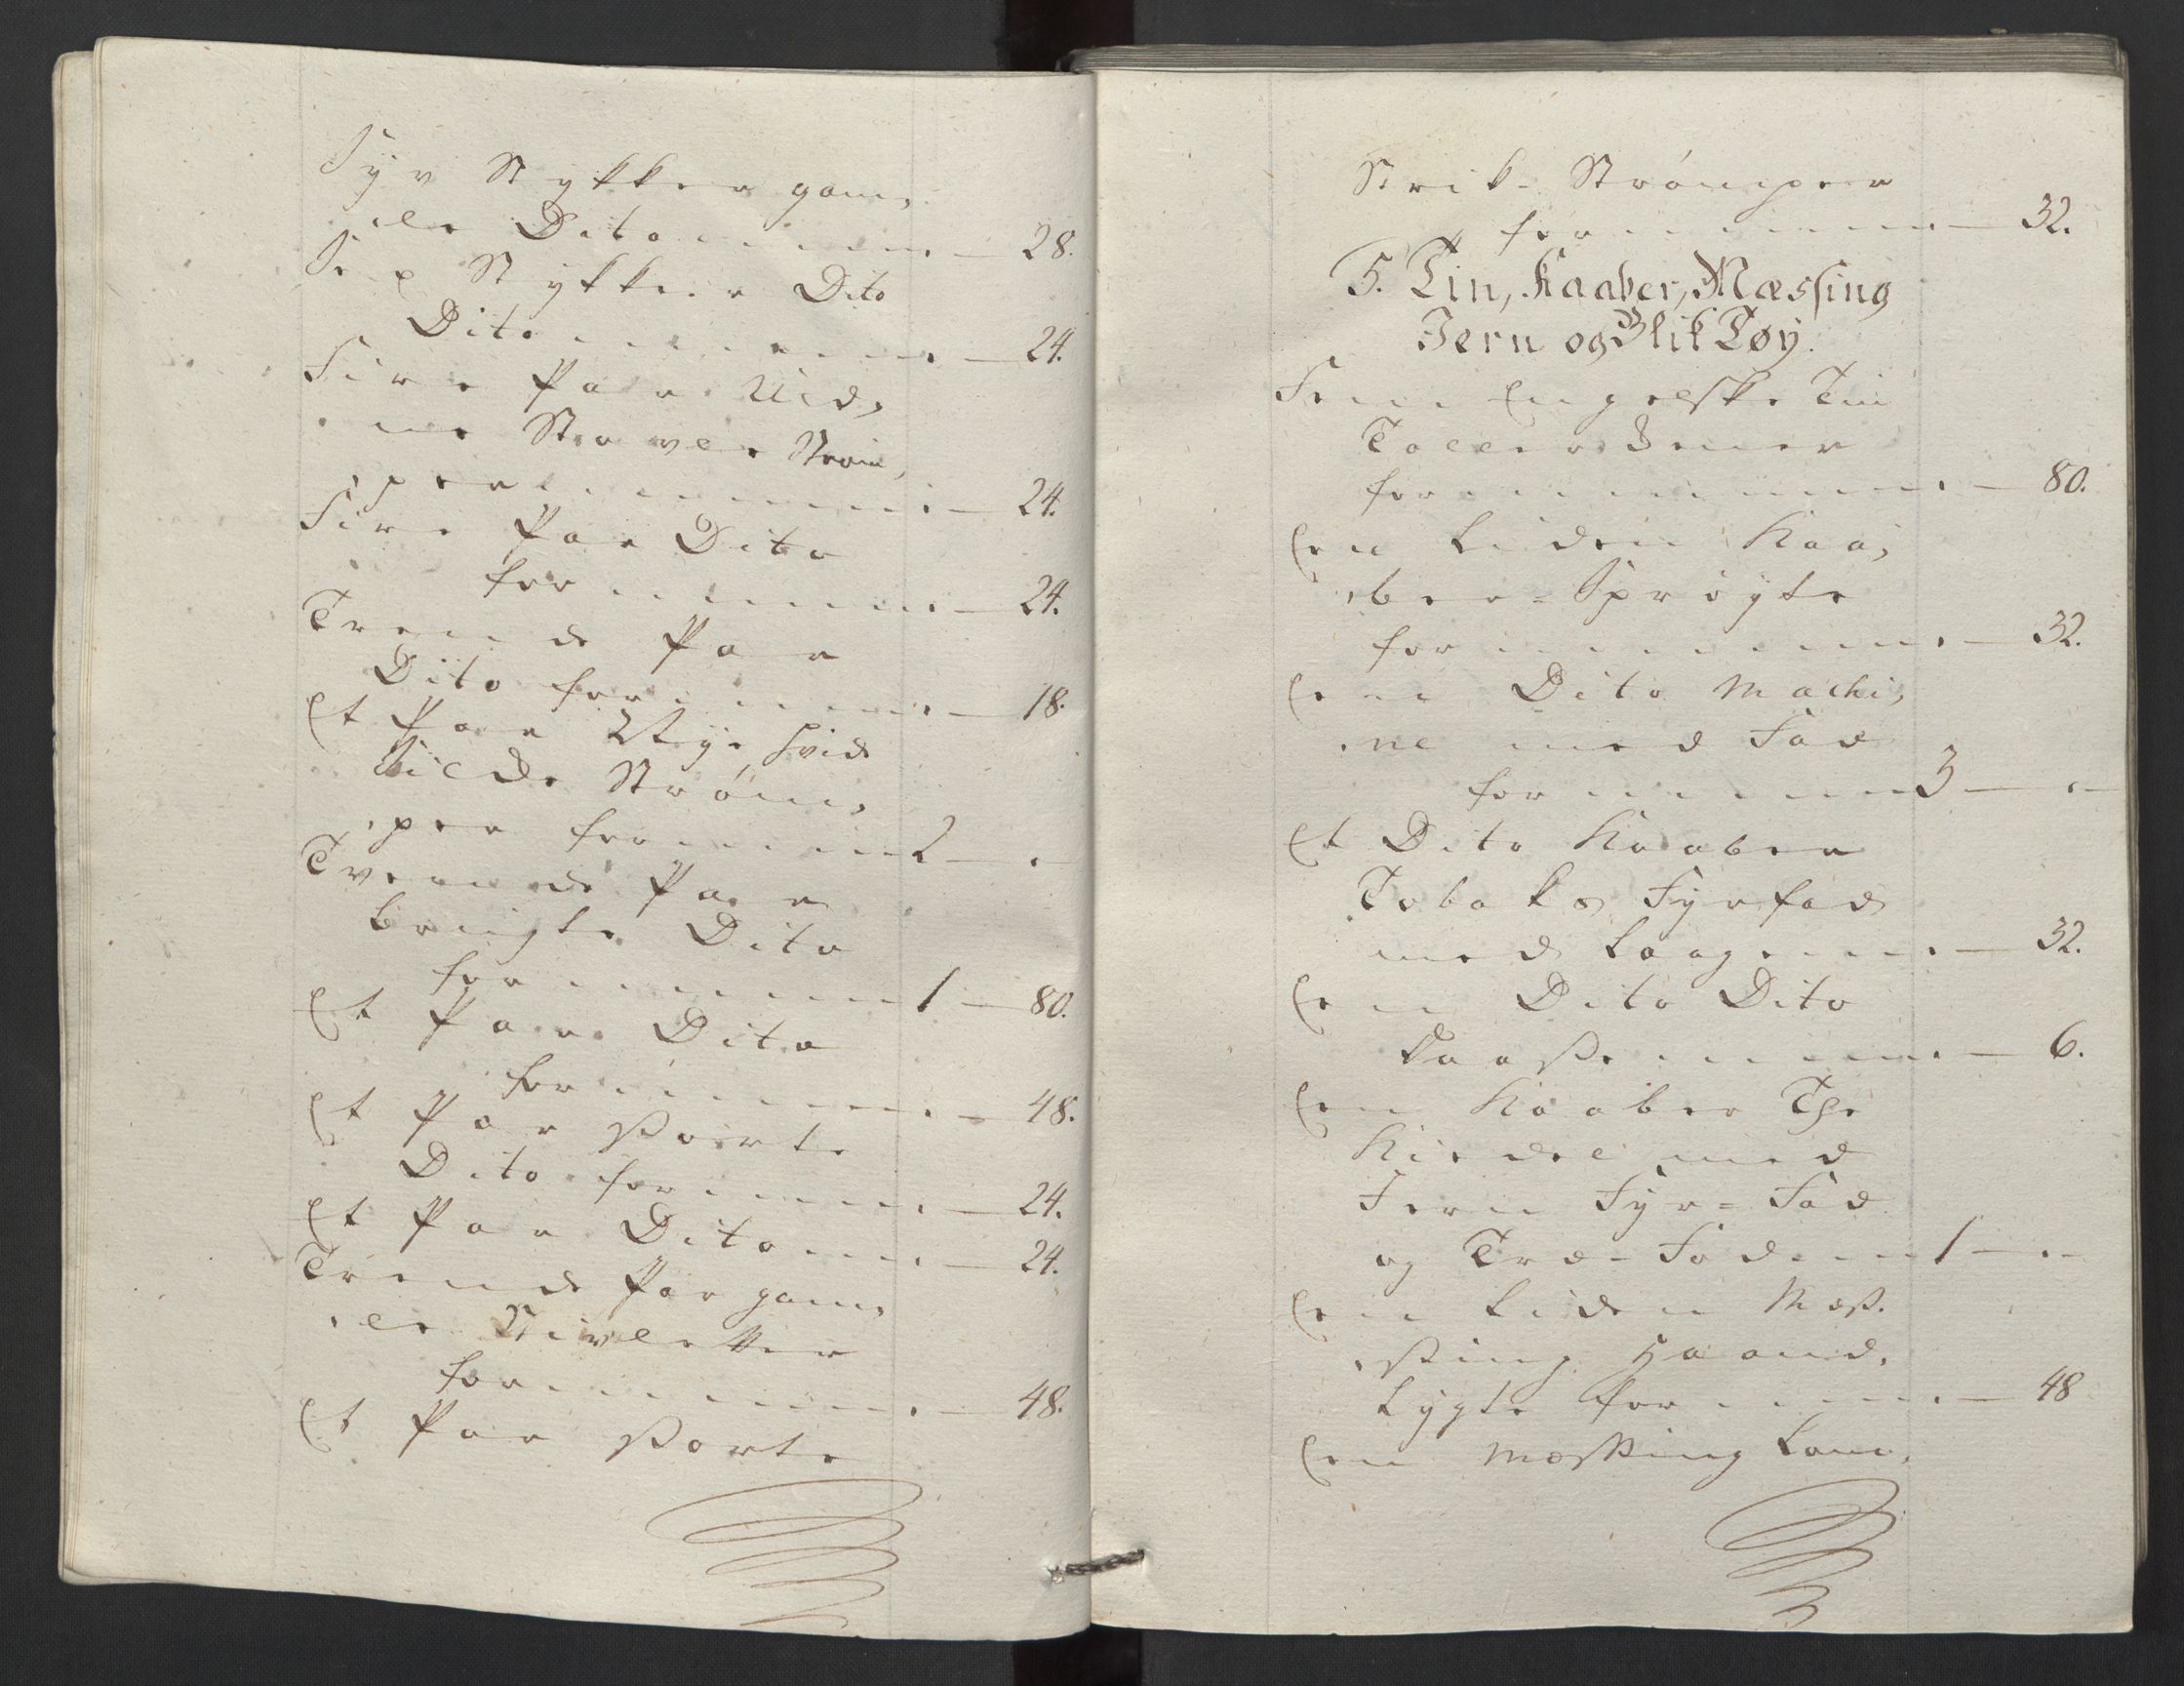 Syv Stykker gam,
,le Dito . . . . . — 28.
Sex Stykker Dito
Dito . . . . . . — 24.
Fire Par Uld,
,ne Støvle Ström,
,per . . . . . . . — 24.
Fire Par Dito
for . . . . . . — 24.
Trende Par
Dito for . . . . . — 18.
Et Par Nye hvid
Silke Ström,
,per for . . . . 2 — „ —
Tvende Par
brugte Dito
for . . . . . . 1 — 80.
Et Par Dito
for . . . . . . — 48.
Et Par sorte
Dito for . . . . . — 24.
Et Par Dito . . . — 24.
Trende Par gam,
,le Stivletter
for . . . . . . . — 48.
Et Par sorte
Strik- Strömper
for . . . . . . — 32.
5. Tin, Kaaber, Mæssing
Jern og Blik Tøy.
Fem Engelske Tin
Tallerkener
for . . . . . . . — 80.
Een Liden Kaa,
,ber = Spröyte
for . . . . . . . — 32.
Een Dito Machi,
,ne med Fad
for . . . . . 3 — „ —
Et Dito Kaaber
Tobaks Fyrfad
med Laag . . . — 32.
Een Dito Dito
Daase . . . . . — 6.
Een Kaaber The
Kiedel med
Jern Fyr = Fad
og Træ- Fod . . . 1 — „ —
Een Liden Mæs,
,sing Haand,
Lygte for . . . . — 48
Een Mæssing Lam,